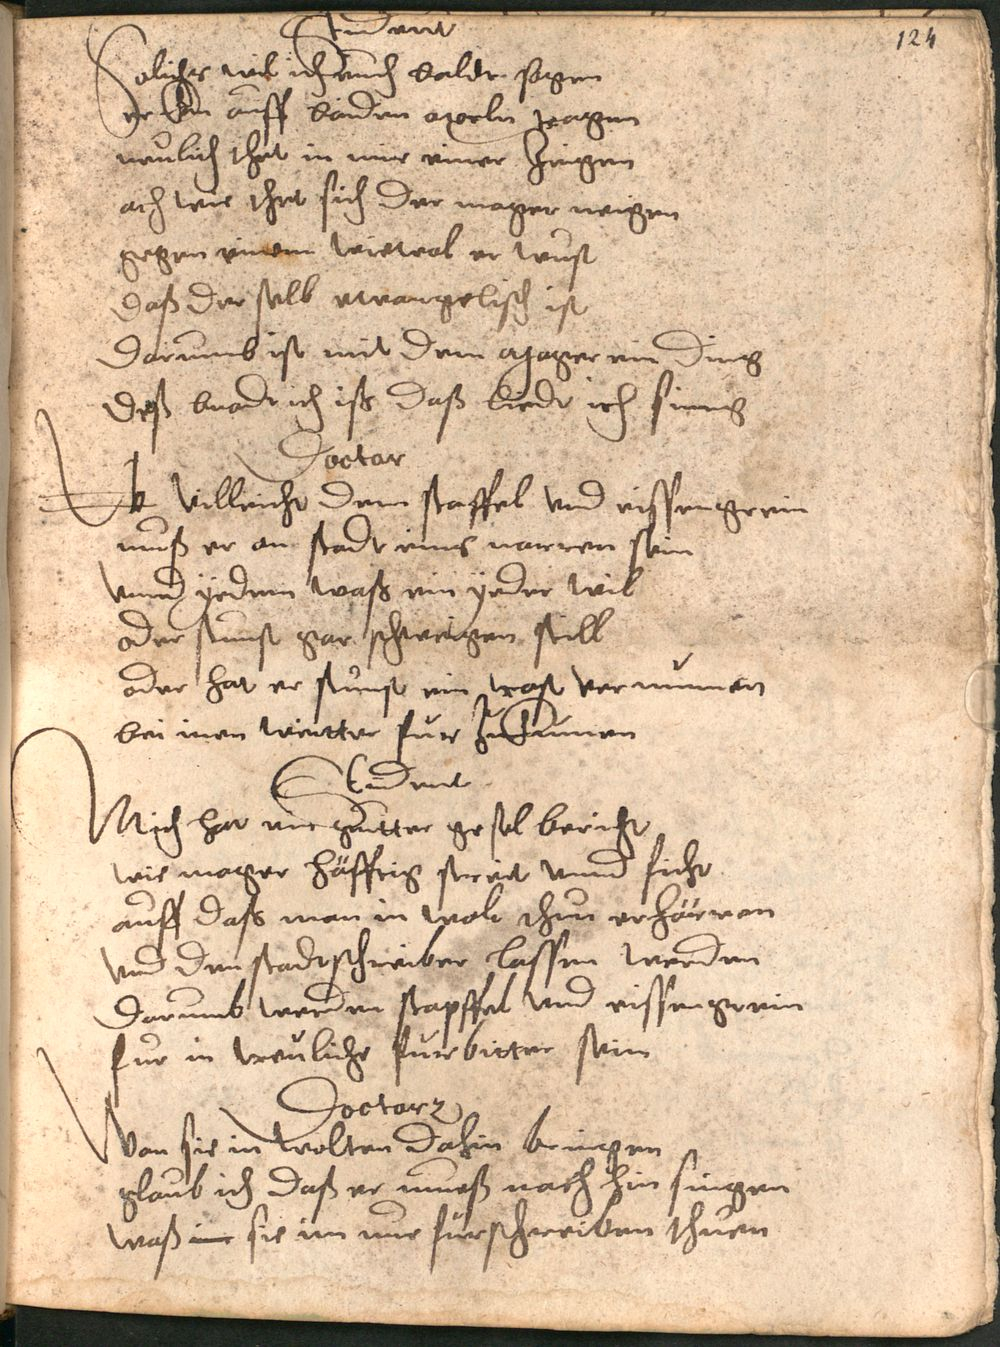 124
Student
Soliches wil ich euch balde sagen
er kan auff baiden agseln tragen
neulich thet in mir einer zeigen
ach wie thet sich der mager neigen
gegen einem wiewol er wust
daß der selb ewangelisch ist
darumb ist mit dem mager ein ding
deß brodt ich iß daß liedt ich sing
Doctor
Ob villeicht dem staffel vnd eissengrein
muß er an stadt eins narren sein
vnnd yedem waß ein yeder wil
oder sunst gar schweigen still
oder hat er sunst ein trost vernumen
bei inen weitter fur zu kumen
Student
Mich hat ein gutter gesel bericht
wie mager häfftig streit vnnd ficht
auff daß man in wolt thun erhörren
vnd den stadtschreiber lassen werden
darumb werden stapffel vnd eissengrein
fur in treuliche furbitter sein
Doctor
Wan sie in wolten dahin bringen
glaub ich daß er mueß nach hin singen
waß sie im nur fürschreiben thuen